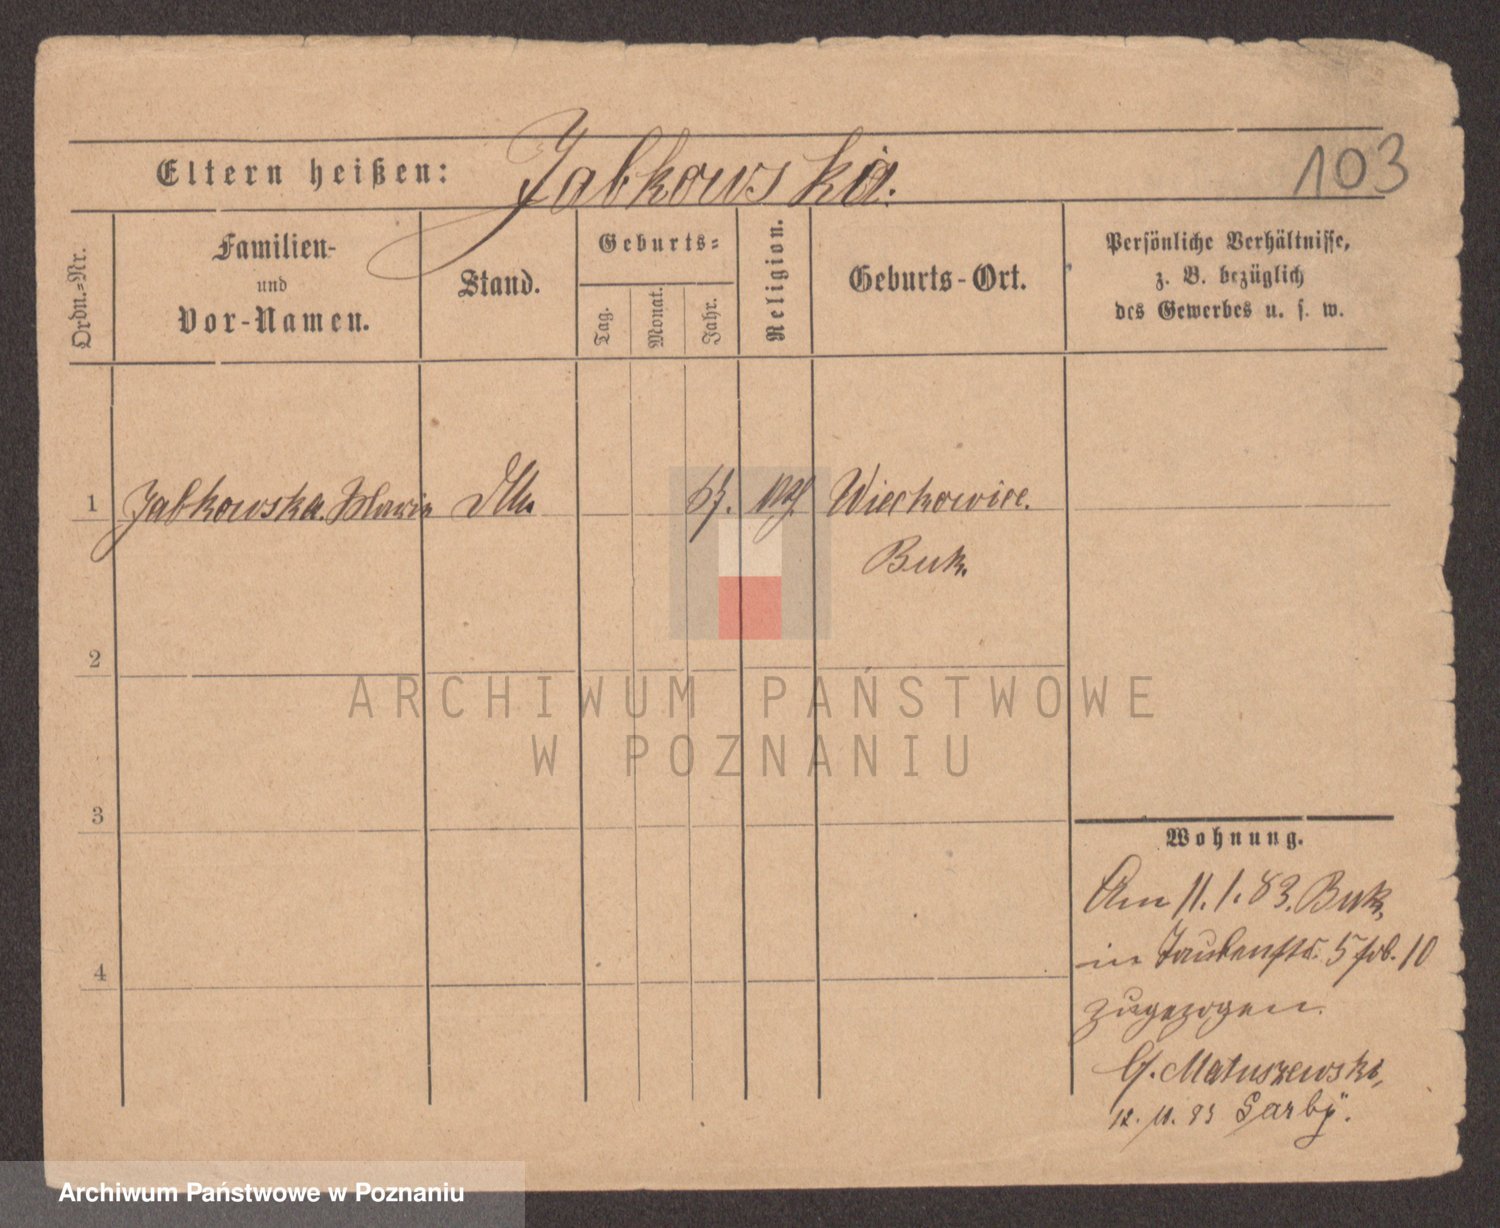 Eltern heißen: Jabkowska.
103
Ordn.=Nr.
Familien-
und
Vor-Namen.
Stand.
Geburts=
Tag.
Monat.
Jahr.
Religion.
Geburts-Ort.
Persönliche Verhältnisse,
z. B. bezüglich
des Gewerbes u. s. w.
1 Jabkowska. Maria 63. Wieckowice.
Buk.
2
3
4
Wohnung.
Am 11. 1. 83. Buk,
in Taubenstr. 5 10
zugezogen.
Matuszewski,
12. 11. 83 Garby.
ARCHIWUM PAŃSTWOWE
W POZNANIU
Archiwum Państwowe w Poznaniu